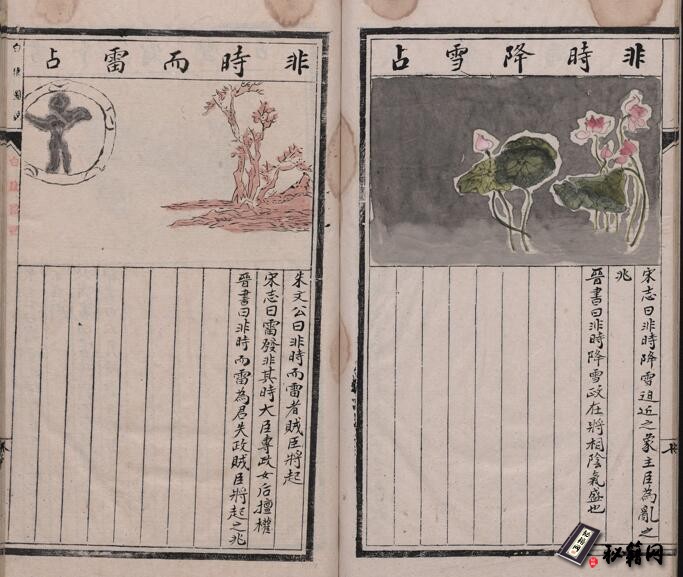 非時降雪占
宋志曰非時降雪迫近之象主臣為亂之
兆
晉書曰非時降雪政在將相陰氣盛也
非時而雷占
朱文公曰非時而雷者賊臣將起
宋志曰雷發非其時大臣專政女后擅權
晉書曰非時而雷為君失政賊臣將起之兆
秘籍网